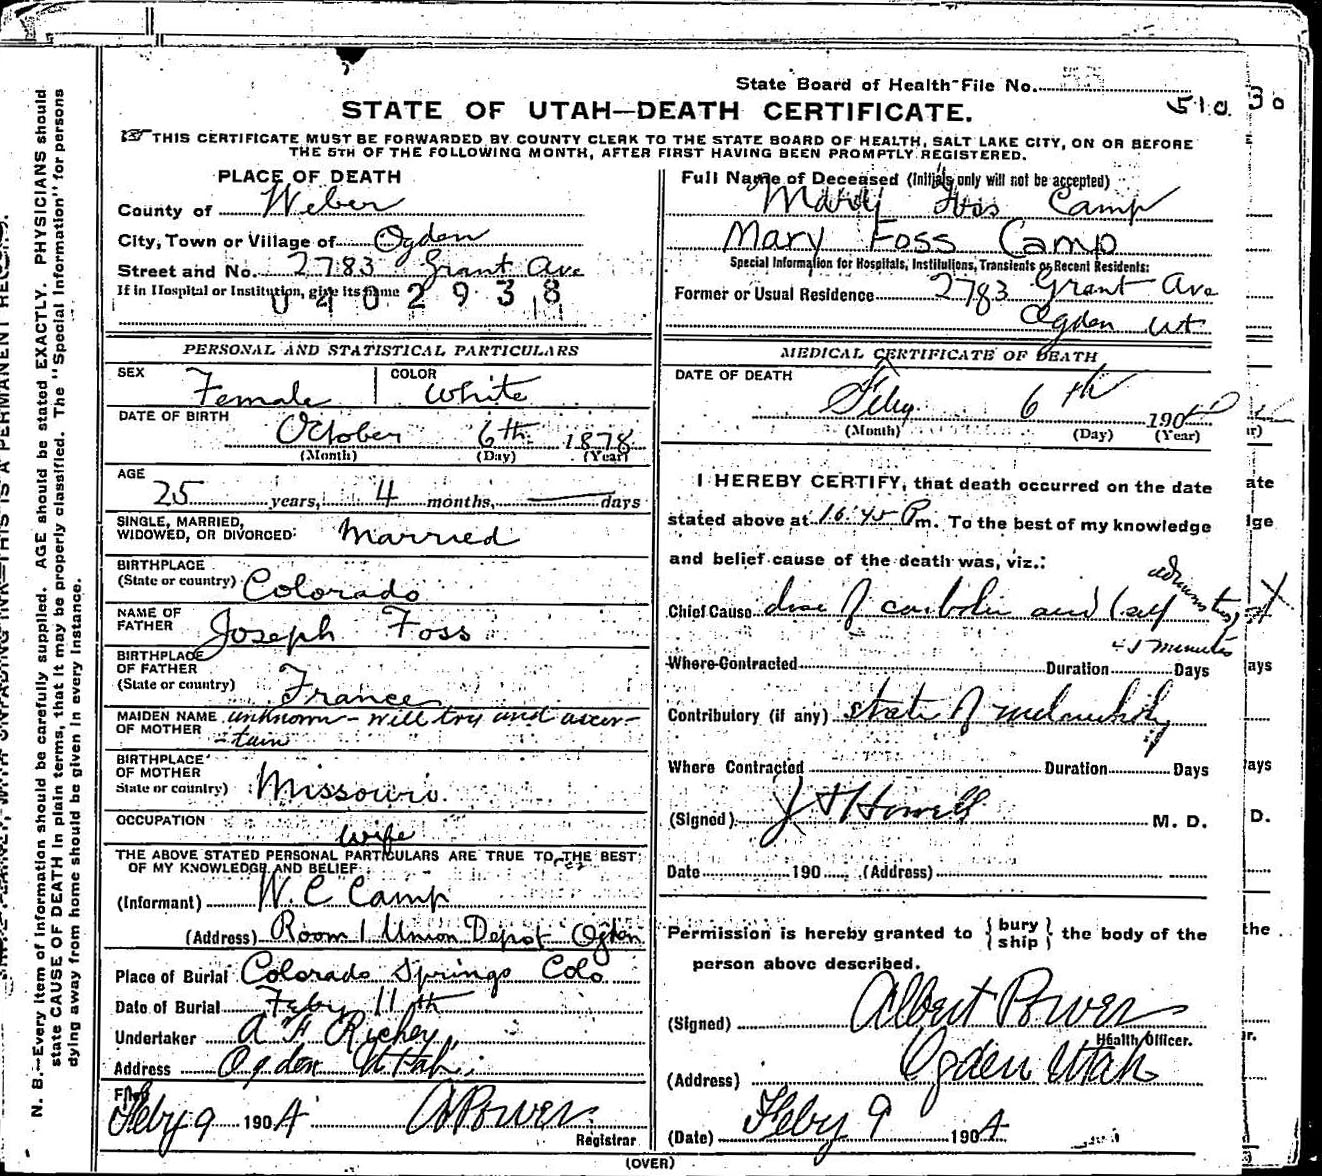 State Board of Health-File No.
STATE OF UTAH—DEATH CERTIFICATE.
510 30
THIS CERTIFICATE MUST BE FORWARDED BY COUNTY CLERK TO THE STATE BOARD OF HEALTH, SALT LAKE CITY, ON OR BEFORE
THE 5TH OF THE FOLLOWING MONTH, AFTER FIRST HAVING BEEN PROMPTLY REGISTERED.
PLACE OF DEATH
County of Weber
City, Town or Village of Ogden
Street and No. 2783 Grant Ave
If in Hospital or Institution, give its name
0402938
PERSONAL AND STATISTICAL PARTICULARS
SEX Female COLOR White
DATE OF BIRTH
October 6th 1878
(Month) (Day) (Year)
AGE
25 years, 4 months, — days
SINGLE, MARRIED,
WIDOWED, OR DIVORCED: Married
BIRTHPLACE
(State or country) Colorado
NAME OF
FATHER Joseph Foss
BIRTHPLACE
OF FATHER
(State or country) France
MAIDEN NAME unknown - will try and ascer-
OF MOTHER -tain
BIRTHPLACE
OF MOTHER
State or country) Missouri
OCCUPATION
wife
THE ABOVE STATED PERSONAL PARTICULARS ARE TRUE TO THE BEST
OF MY KNOWLEDGE AND BELIEF
(Informant) W. C Camp
(Address) Room 1 Union Depot Ogden
Place of Burial Colorado Springs Colo
Date of Burial Feby 11th
Undertaker A F Richey
Address Ogden Utah
Filed
Feby 9 1904 A Power
Registrar
Full Name of Deceased (Initials only will not be accepted)
Mary Foss Camp
Mary Foss Camp
Special Information for Hospitals, Institutions, Transients or Recent Residents:
Former or Usual Residence 2783 Grant Ave
Ogden Ut
MEDICAL CERTIFICATE OF DEATH
DATE OF DEATH
Feby 6th 190
(Month) (Day) (Year)
I HEREBY CERTIFY, that death occurred on the date
stated above at 10:45 Pm. To the best of my knowledge
and belief cause of the death was, viz.:
Chief Cause dose of carbolic acid (self
Where Contracted Duration minutes Days
Contributory (if any) state of melancholy
Where Contracted Duration Days
(Signed) Howell M. D.
Date 190 (Address)
Permission is hereby granted to { bury ship } the body of the
person above described.
(Signed) Albert Power
Health Officer.
(Address) Ogden Utah
(Date) Feby 9 1904
(OVER)
N. B.—Every item of information should be carefully supplied. AGE should be stated EXACTLY. PHYSICIANS should
state CAUSE OF DEATH in plain terms, that it may be properly classified. The "Special Information" for persons
dying away from home should be given in every instance.